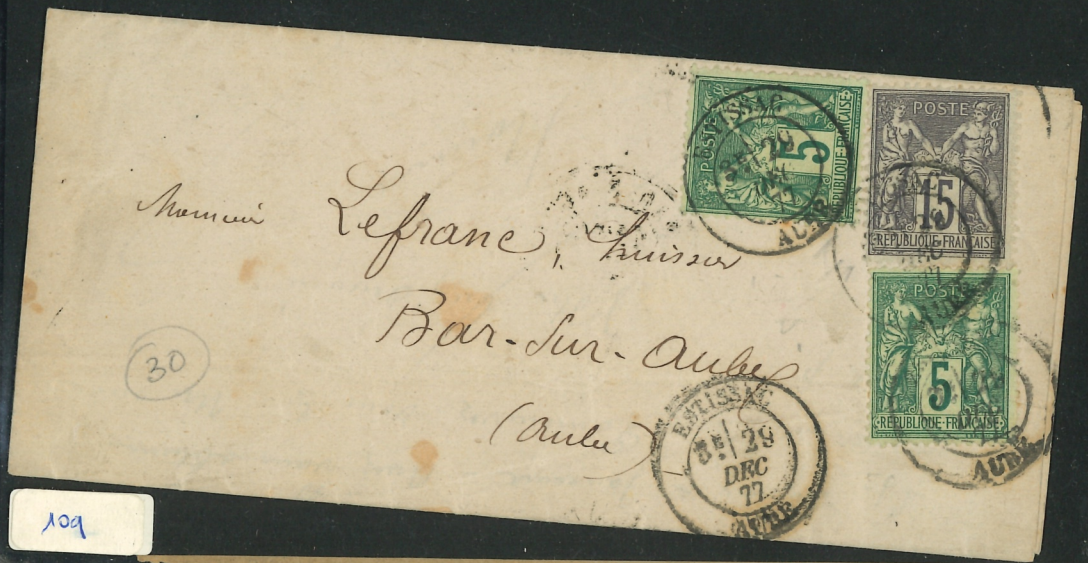 POSTE
5
REPUBLIQUE FRANÇAISE
ESTISSAC
29
AUBE
POSTE
15
REPUBLIQUE FRANÇAISE
POSTE
5
REPUBLIQUE FRANÇAISE
AUBE
Monsieur
Lefranc, huissier
Bar-sur-Aube
(Aube)
30
ESTISSAC
3E 29
DEC
77
AUBE
109